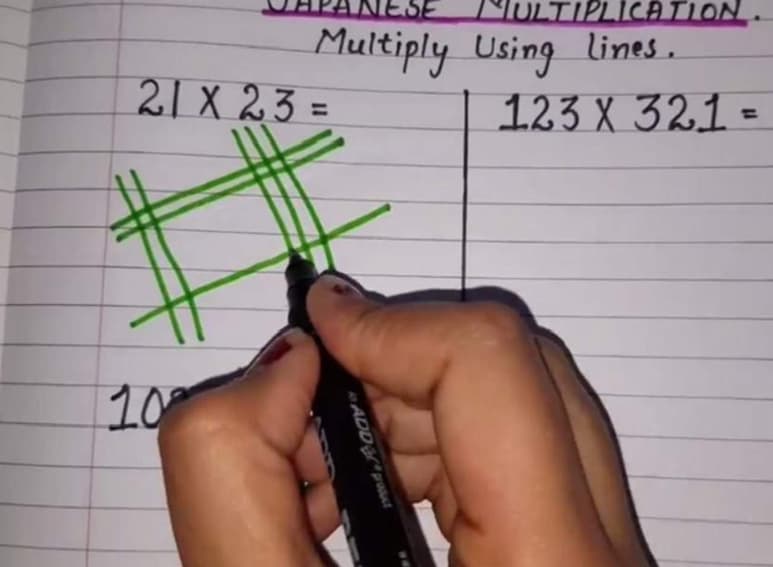 JAPANESE MULTIPLICATION.
Multiply Using lines.
21 X 23 =
123 X 321 =
10
ADD
product